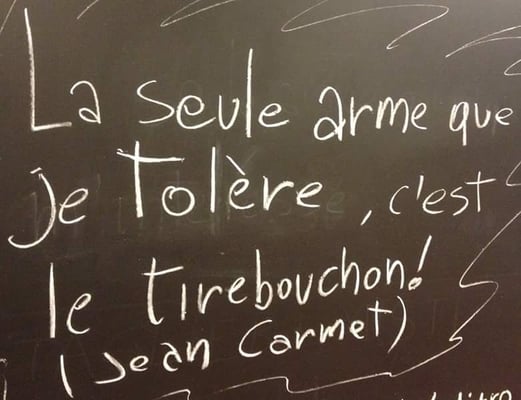 La seule arme que
je tolère, c'est
le tirebouchon!
(Jean Carmet)